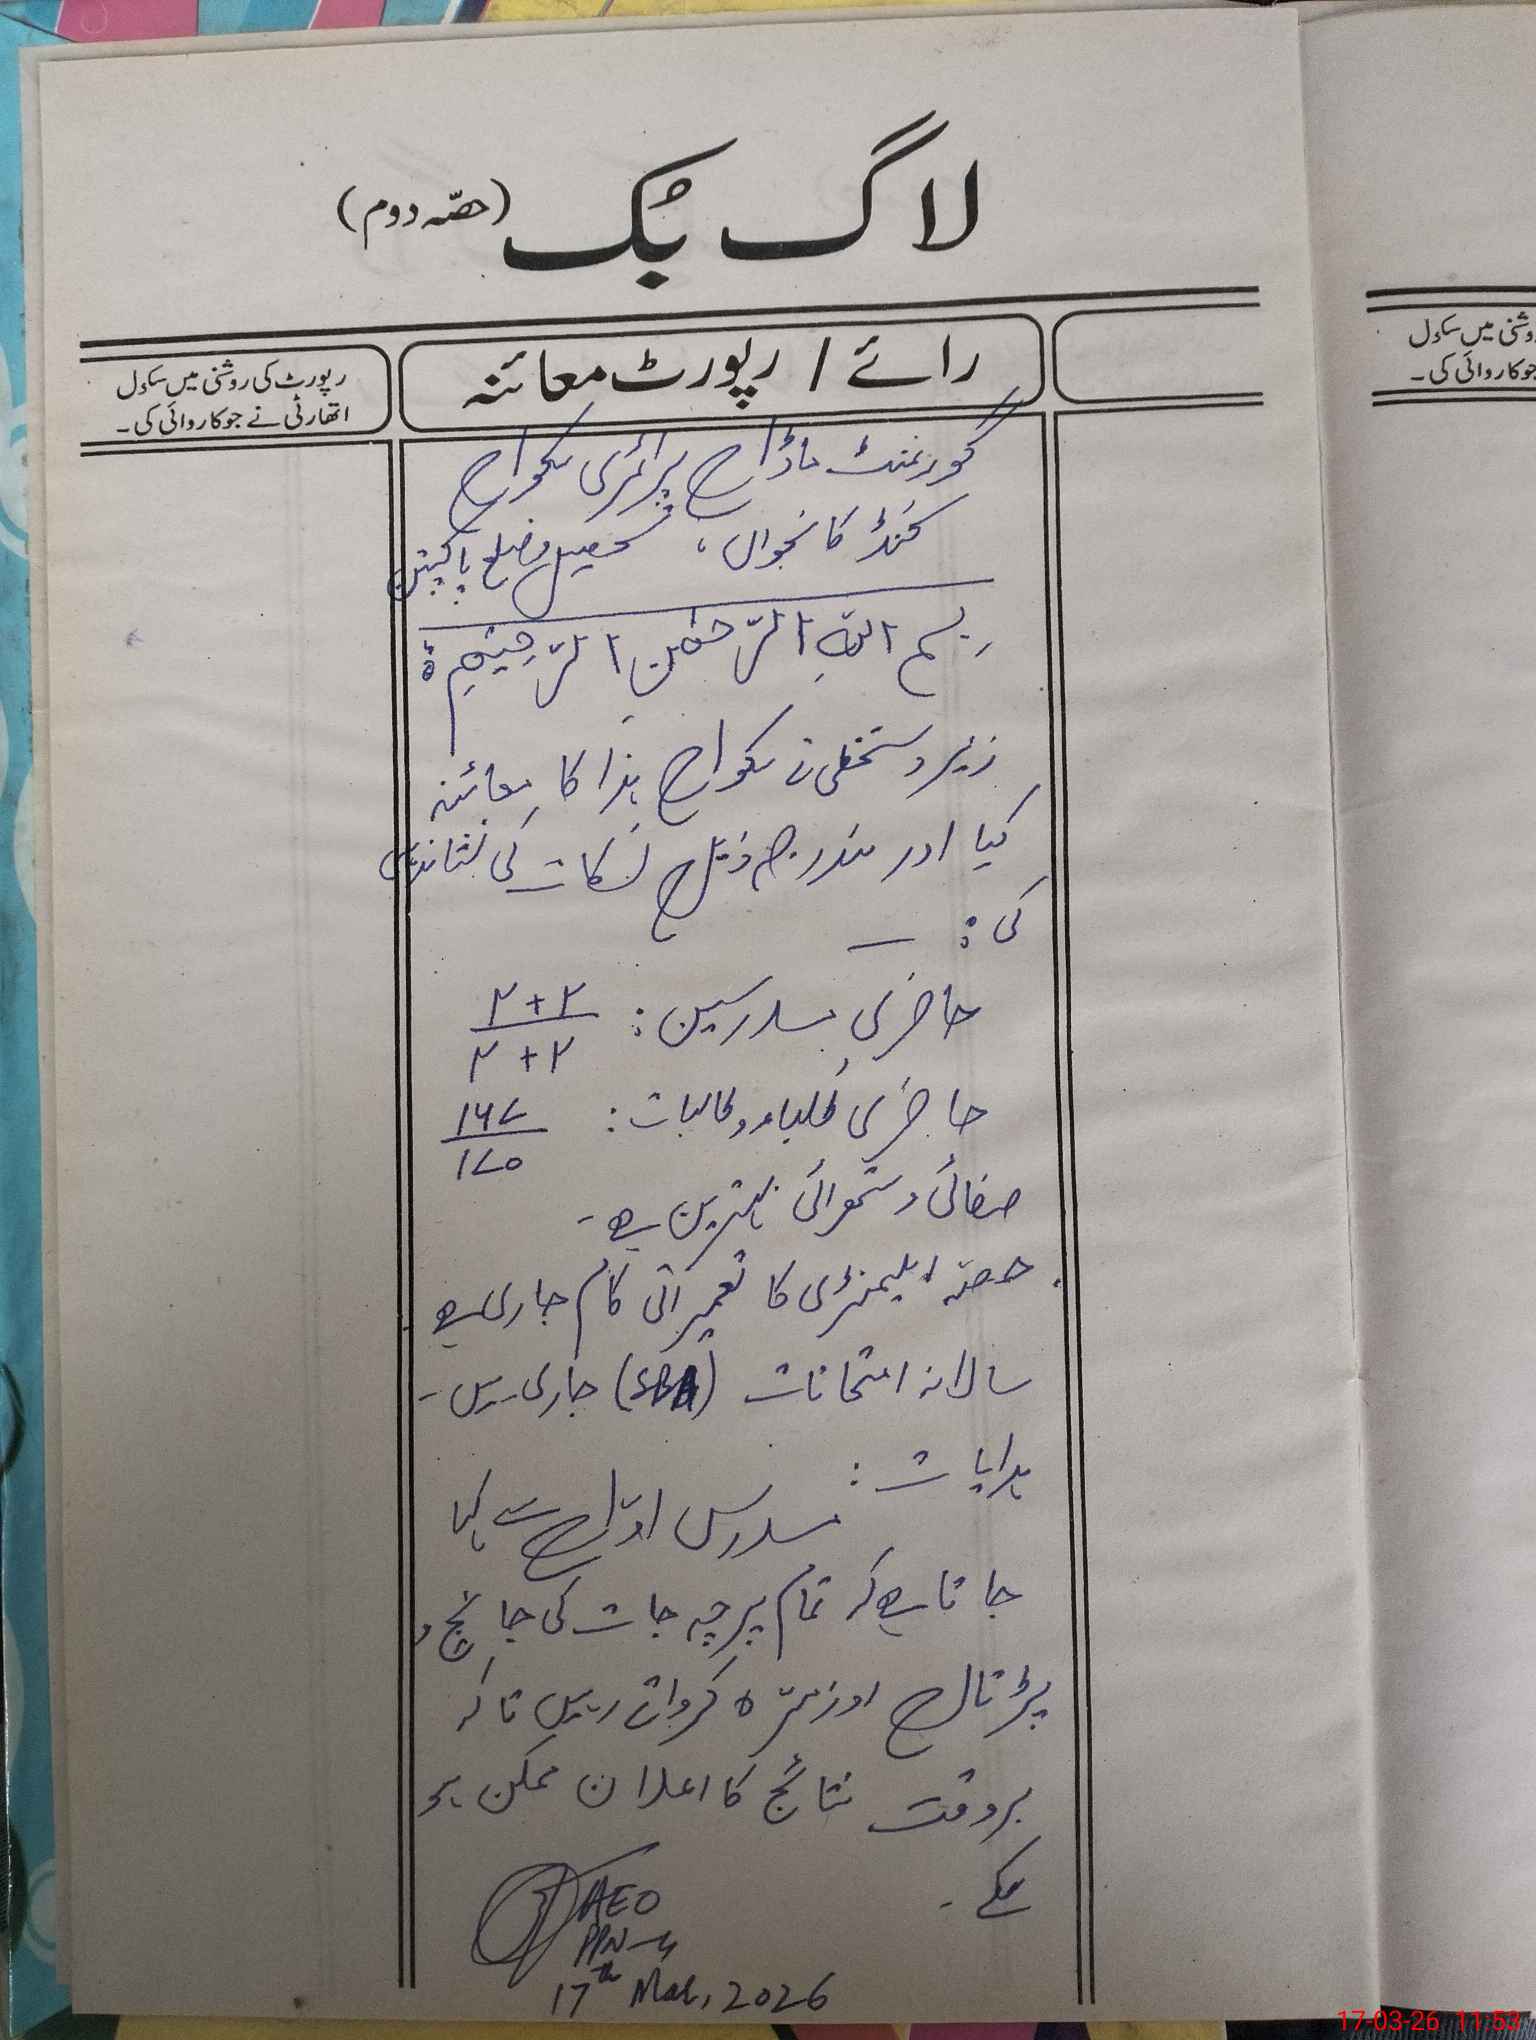 لاگ بُک (حصّہ دوم)
رائے / رپورٹ معائنہ
رپورٹ کی روشنی میں سکول
اتھارٹی نے جو کاروائی کی۔
وشنی میں سکول
جو کاروائی کی۔
گورنمنٹ ماڈل پرائمری سکول
کُنڈ کانجوال، تحصیل و ضلع پاکپتن
بسم اللہِ الرّحمٰنِ الرّحِیْمِ ۃ
زیر دستخطی نے سکول ہذا کا معائنہ
کیا اور مندرجہ ذیل نکات کی نشاندہی
کی : —
حاضری مدرسین : ۲+۲
۲+۲
حاضری طلباء و طالبات : ۱۶۷
۱۷۵
صفائی و ستھرائی بہترین ہے۔
حصّہ ایلیمنٹری کا تعمیراتی کام جاری ہے۔
سالانہ امتحانات (SBA) جاری ہیں۔
ہدایات : مدرس اوّل سے کہا
جاتا ہے کہ تمام پرچہ جات کی جانچ و
پڑتال روزمرّہ کرواتے رہیں تاکہ
بروقت نتائج کا اعلان ممکن ہو
سکے۔
AEO
PPN-4
17th Mar, 2026
17-03-26 11:53